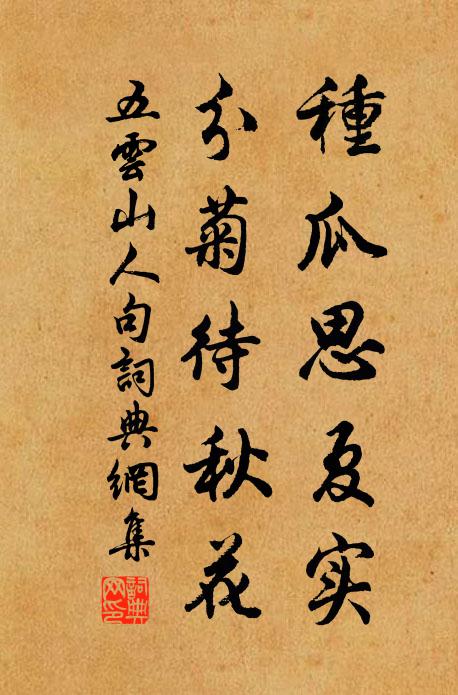 種瓜思夏实
分菊待秋花
五雲山人句詞典網集
詞典
网印